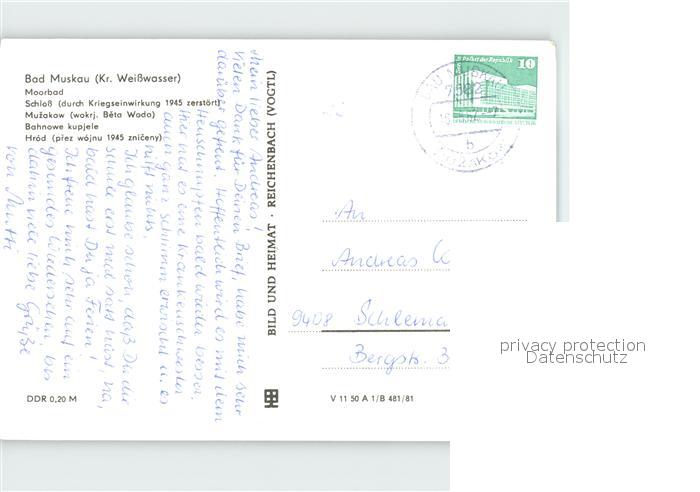 Bad Muskau (Kr. Weißwasser)
Moorbad
Schloß (durch Kriegseinwirkung 1945 zerstört)
Mužakow (wokrj. Běła Woda)
Bahnowe kupjele
Hród (přez wójnu 1945 zničeny)
Mein lieber Andreas!
Vielen Dank für Deinen Brief, habe mich sehr
darüber gefreut. Hoffentlich wird es mit dem
Heuschnupfen bald wieder besser.
Hier hat es eine Krankenschwester
auch ganz schlimm erwischt u. es
hilft nichts.
Ich glaube schon, daß Du die
Schule erst mal satt hast, na,
bald hast Du ja Ferien!
Ich freue mich sehr auf ein
gesundes Wiedersehen, bis
dahin viele liebe Grüße
von Mutti
DDR 0,20 M
BILD UND HEIMAT · REICHENBACH (VOGTL)
V 11 50 A 1/B 481/81
Palast der Republik
10
BAD MUSKAU
7582
b
MUŽAKOW
An
Andreas
9408 Schlema
Bergstr. 3
privacy protection
Datenschutz